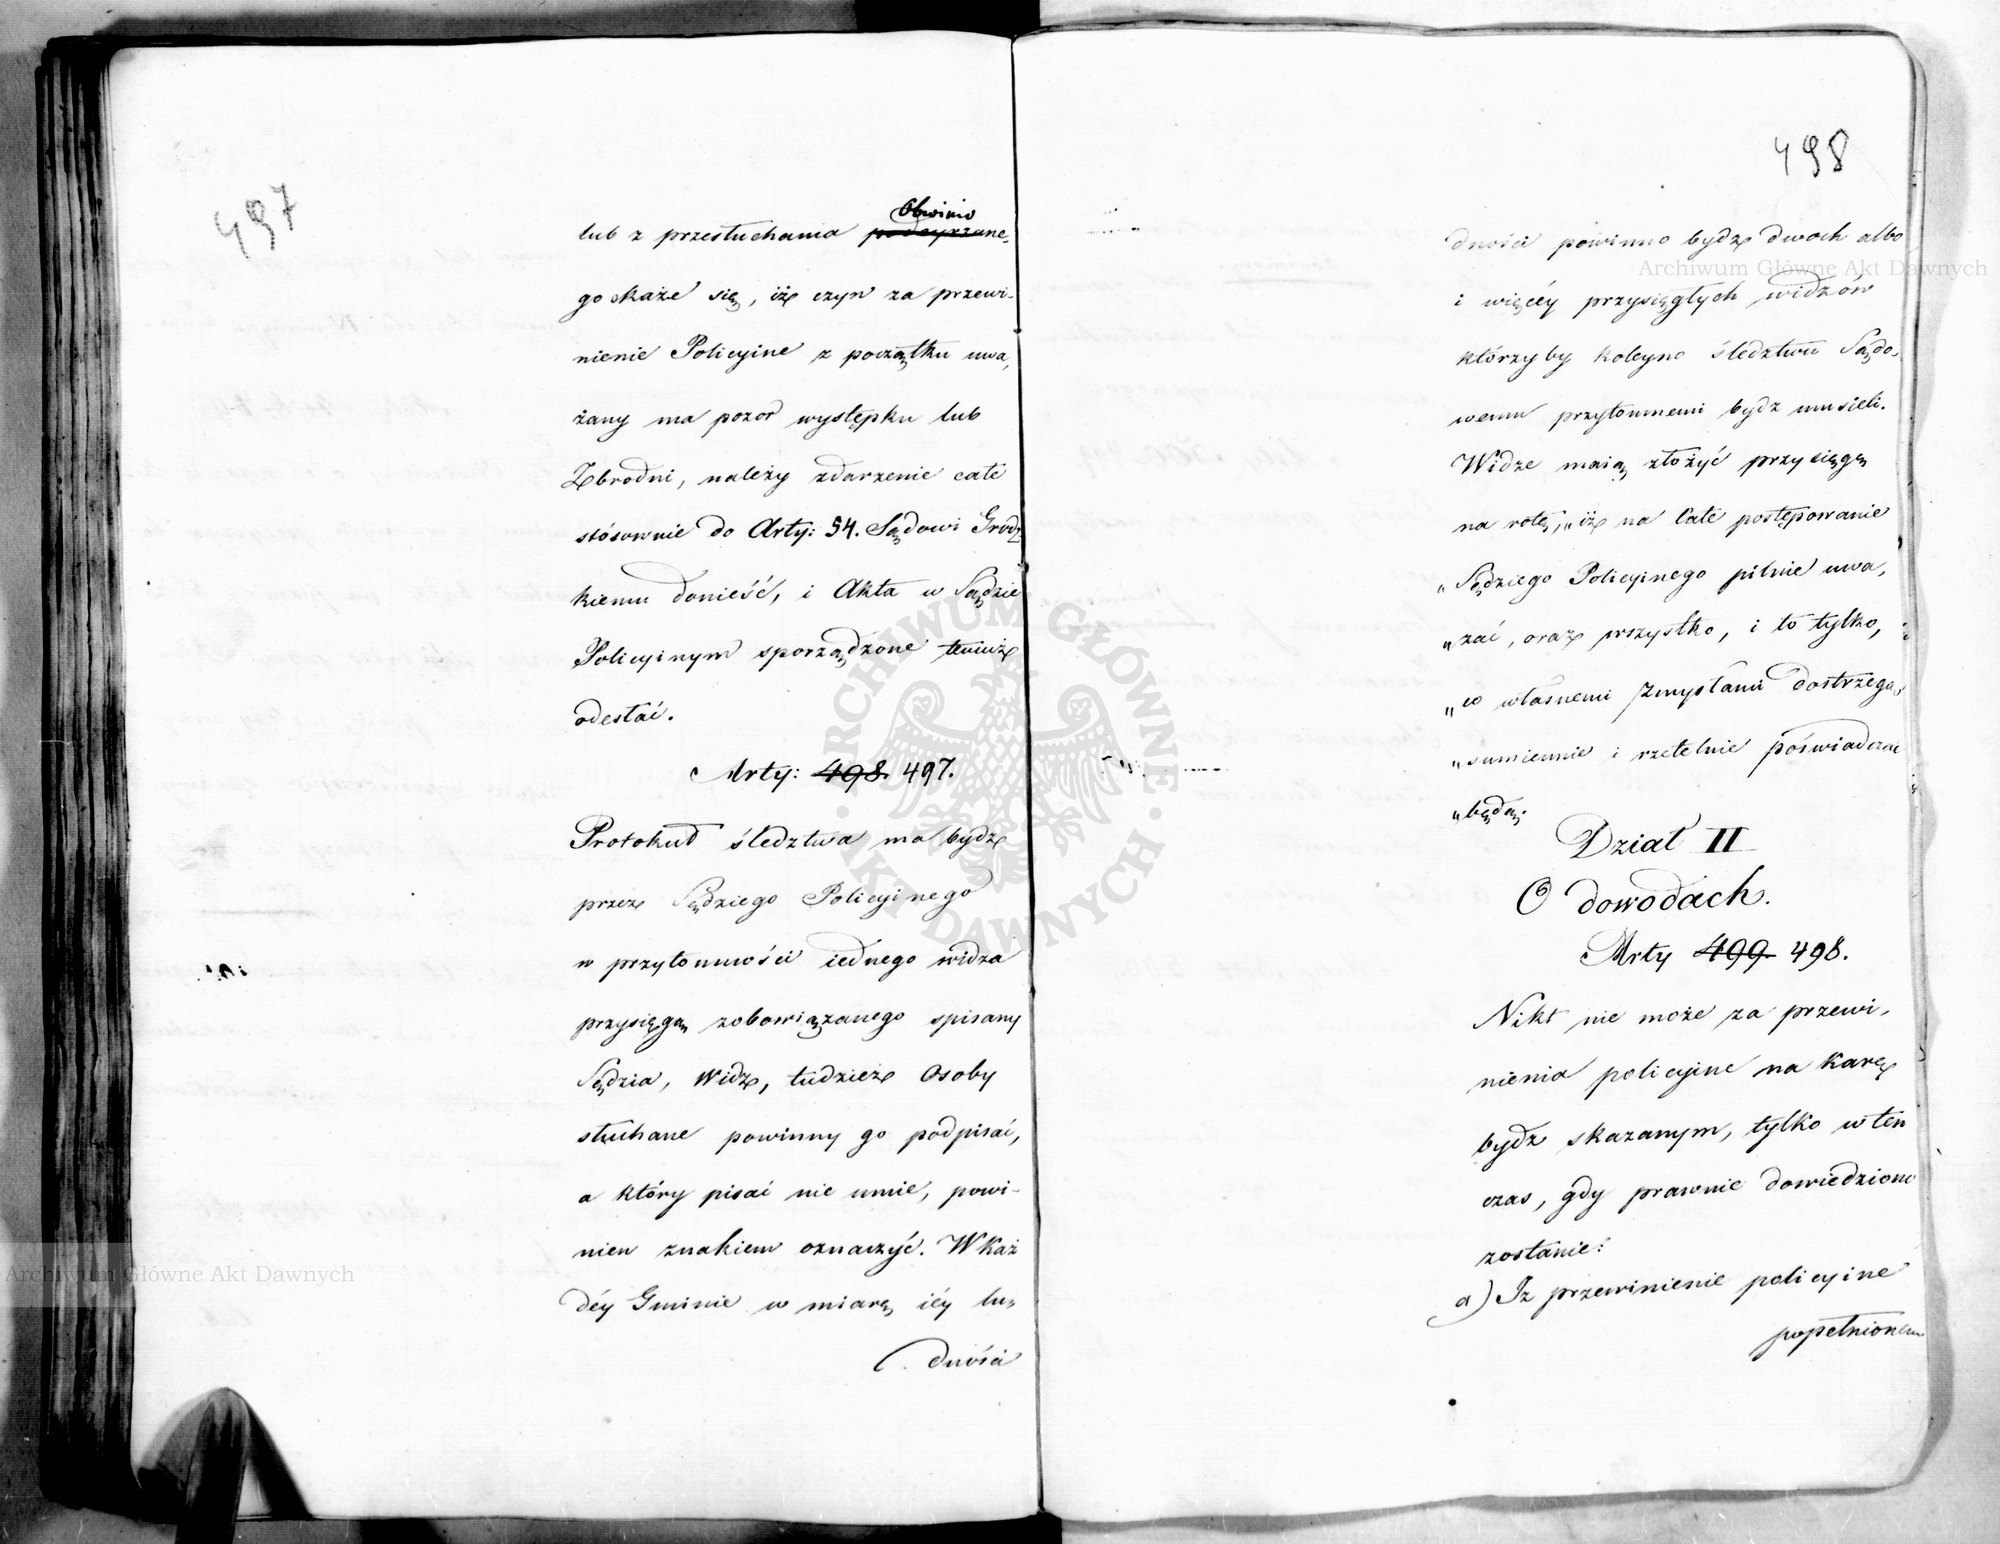 497
Obwinio
lub z przesłuchania podeyrzane-
go okaże się, iż czyn za przewi-
nienie Policyine z początku uwa,
żany ma pozor występku lub
Zbrodni, należy zdarzenie całe
stósownie do Arty: 54. Sądowi Grodz
kiemu donieść, i Akta w Sądzie
Policyinym sporządzone temuż
odesłać.
Arty: 498. 497.
Protokuł śledztwa ma bydź
przez Sędziego Policyinego
w przytomności iednego widza
przysięgą zobowiązanego spisany
Sędzia, Widz, tudzież Osoby
słuchane powinny go podpisać,
a który pisać nie umie, powi-
nien znakiem oznaczyć. W Każ
déy Gminie w miarę iéy lu,
dności
498
dności powinno bydź dwoch albo
i więcéy przysięgłych widzów
którzyby koleyno śledztwu Sądo,
wemu przytomnemi bydź musieli.
Widze maią złożyć przysięgę
na rotę, „iż na całe postępowanie
„Sędziego Policyinego pilnie uwa,
„żać, oraz wszystko, i to tylko,
„co własnemi zmysłami dostrzegą,
„sumiennie i rzetelnie poświadczać
„będą.
Dział II
O dowodach.
Arty 499. 498.
Nikt nie może za przewi,
nienia policyine na karę
bydź skazanym, tylko w ten
czas, gdy prawnie dowiedziono
zostanie:
a) Iż przewinienie policyine
popełnionem
Archiwum Główne Akt Dawnych
Archiwum Główne Akt Dawnych
ARCHIWUM GŁÓWNE AKT DAWNYCH